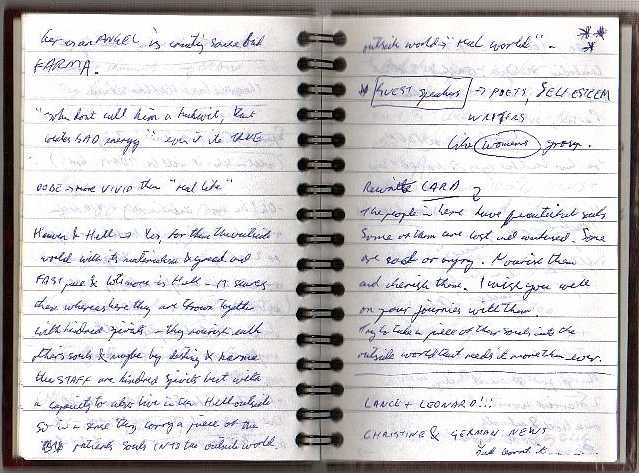 her as an ANGEL is creating some bad
KARMA.
"Who don't call him a halfwit, that
creates BAD energy" even if its TRUE
more VIVID than "real life"
Heaven & Hell → Yes, for them the outside
world with its materialism & greed and
FAST pace & lots more is Hell - IT scares
them whereas here they are thrown together
with kindred spirits - they nourish each
others souls & maybe by destiny & karma
the STAFF are kindred spirits but with
a capacity to also live in the Hell outside
so in a sense they carry a piece of the
patients souls INTO the outside world.
outside world is "real world" -
** GUEST speakers → POETS, SELF ESTEEM
WRITERS
like women's group.
Rewrite CARD
The people in here have beautiful souls
Some of them are lost and wounded. Some
are sad or angry. Nourish them
and cherish them. I wish you well
on your journies with them.
Try to take a piece of their souls into the
outside world that needs it more than ever.
LANCE + LEONARD!!!
CHRISTINE & GERMAN NEWS